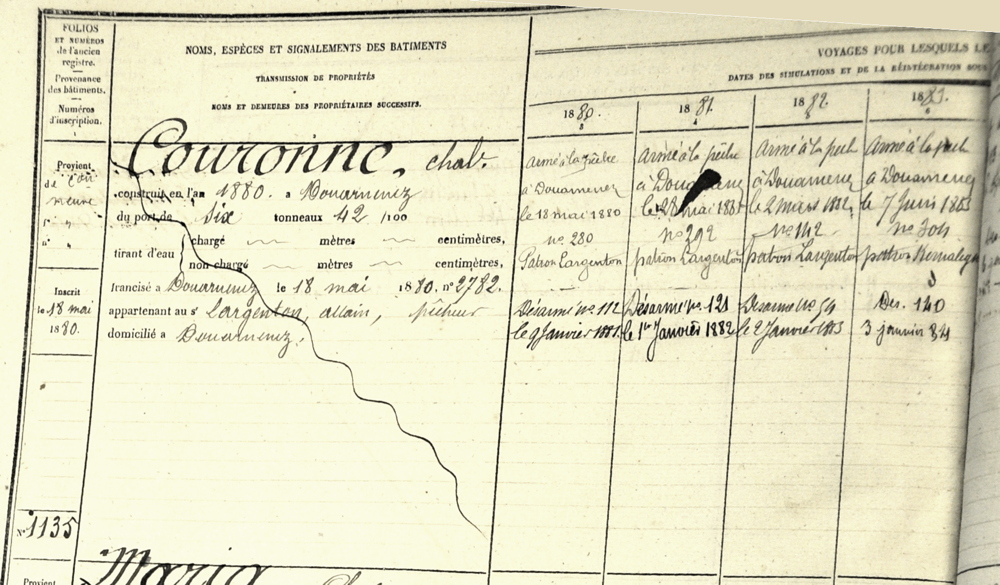 FOLIOS
ET NUMÉROS
de l'ancien
registre.
Provenance
des bâtiments.
Numéros
d'inscription.
NOMS, ESPÈCES ET SIGNALEMENTS DES BATIMENTS
TRANSMISSION DE PROPRIÉTÉS
NOMS ET DEMEURES DES PROPRIÉTAIRES SUCCESSIFS.
VOYAGES POUR LESQUELS LE
DATES DES SIMULATIONS ET DE LA RÉINTÉGRATION SOUS
1880.
1881.
1882.
1883.
Provient
de
neuve
f°
n°
Inscrit
le 18 mai
1880.
N° 1135
Couronne. chal.
construit en l'an 1880. a Douarnenez
du port de six tonneaux 42 /100
tirant d'eau
chargé mètres centimètres,
non chargé mètres centimètres,
francisé à Douarnenez le 18 mai 1880. n° 2782.
appartenant au sr Largenton, allain, pêcheur
domicilié à Douarnenez.
Armé à la pêche
à Douarnenez
le 18 mai 1880
n° 280
Patron Largenton
Désarmé n° 112
le 9 Janvier 1881.
Armé à la pêche
à Douarnenez
mai 1881
n° 292
patron Largenton
Désarmé n° 121
le 1er Janvier 1882
Armé à la pech
à Douarnenez
le 2 Mars 1882,
n° 142
patron Largenton
Désarmé n° 54
le 2 Janvier 1883
Armé à la pech
à Douarnenez
le 7 Juin 1883
n° 304
patron
Des. 140
3 janvier 84
Maria
Provient